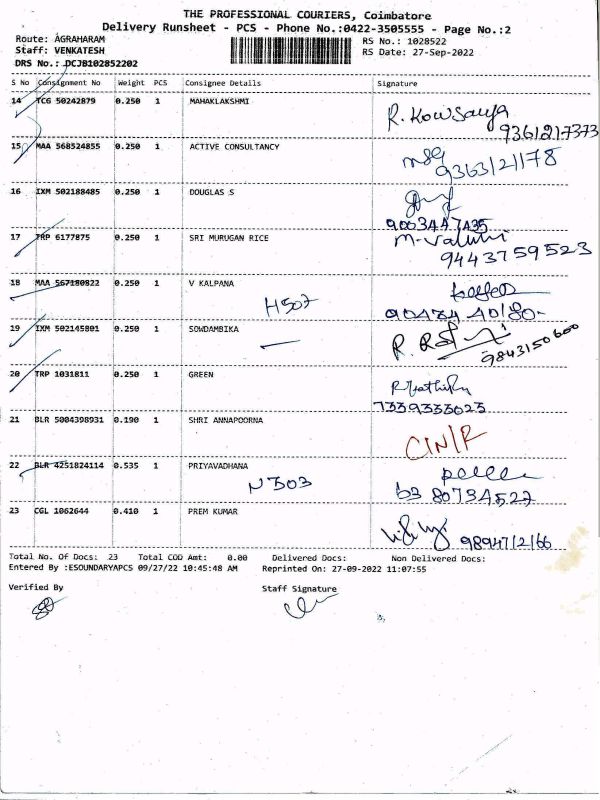 THE PROFESSIONAL COURIERS, Coimbatore
Delivery Runsheet - PCS - Phone No.:0422-3505555 - Page No.:2
Route: AGRAHARAM
RS No.: 1028522
Staff: VENKATESH
RS Date: 27-Sep-2022
DRS No.: DCJB102852202
S No Consignment No Weight PCS Consignee Details Signature
14 TCG 50242879 0.250 1 MAHAKLAKSHMI R. Kowsalya
9361217373
15 MAA 568524855 0.250 1 ACTIVE CONSULTANCY
9363121178
16 IXM 502188485 0.250 1 DOUGLAS S
9003447435
17 TRP 6177875 0.250 1 SRI MURUGAN RICE M-Valumi
9443759523
18 MAA 567180822 0.250 1 V KALPANA
H507 90474 40180-
19 IXM 502145801 0.250 1 SOWDAMBIKA R.
9843150600
20 TRP 1031811 0.250 1 GREEN
7339333023
21 BLR 5004398931 0.190 1 SHRI ANNAPOORNA
CIN/R
22 BLR 4251824114 0.535 1 PRIYAVADHANA
N303 63 80734527
23 CGL 1062644 0.410 1 PREM KUMAR
9894712166
Total No. Of Docs: 23 Total COD Amt: 0.00 Delivered Docs: Non Delivered Docs:
Entered By :ESOUNDARYAPCS 09/27/22 10:45:48 AM Reprinted On: 27-09-2022 11:07:55
Verified By Staff Signature